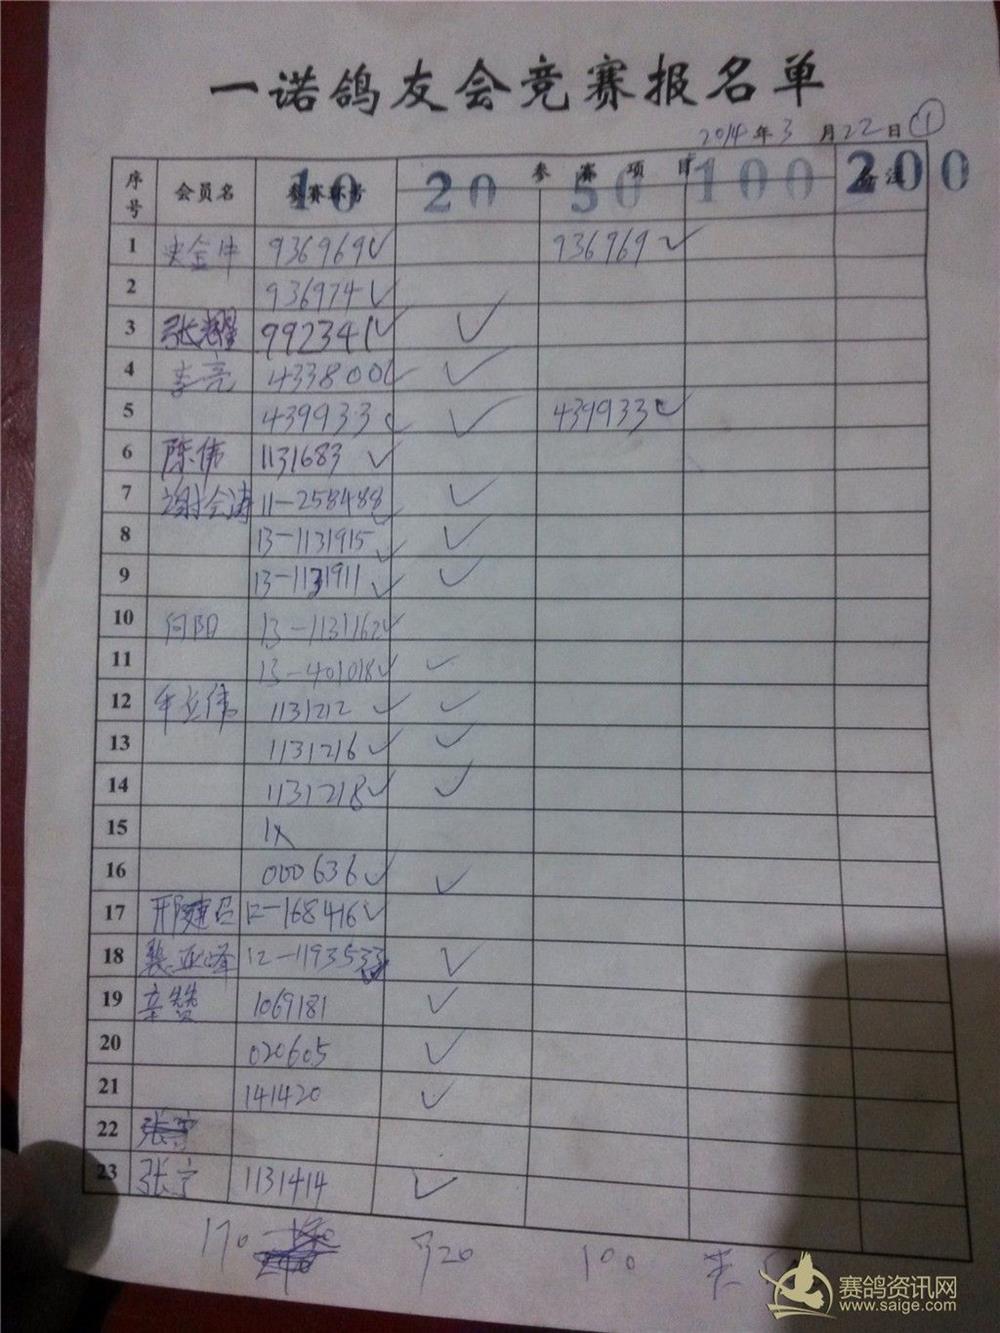 一诺鸽友会竞赛报名单
2014年3月22日①
序号 会员名 参赛环号 参赛项目 备注
10 20 50 100 200
1 936969✓ 936969✓
2 936974✓
3 张耀 992341✓ ✓
4 李亮 433800✓ ✓
5 439933✓ ✓ 439933✓
6 陈伟 1131683 ✓
7 谢会涛 11-258488✓ ✓
8 13-1131915✓ ✓
9 13-1131911✓ ✓
10 向阳 13-1131162✓
11 13-401018✓ ✓
12 牟立伟 1131212 ✓ ✓
13 1131216✓ ✓
14 1131218✓ ✓
15
16 000636✓ ✓
17 邢建召 12-168416✓
18 裴亚峰 12-1193533 ✓
19 辛赞 1069181 ✓
20 020605 ✓
21 141420 ✓
22
23 张宁 1131414 ✓
170 100
赛鸽资讯网
www.saige.com